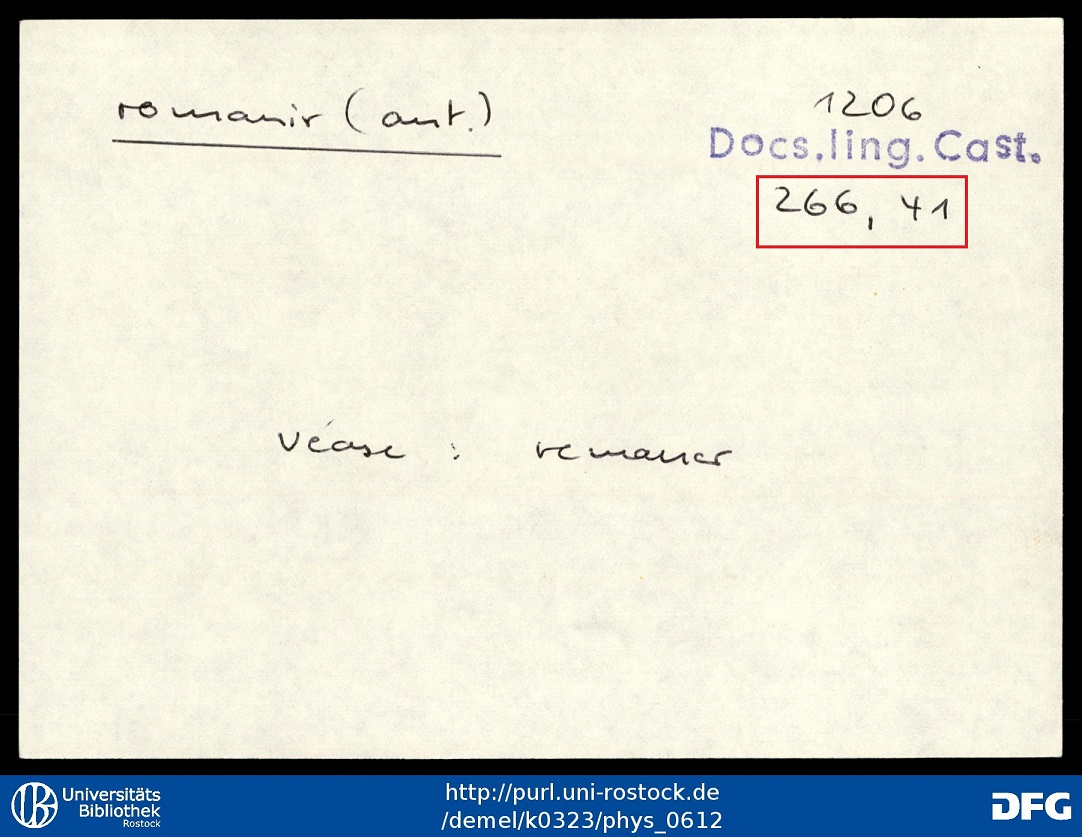 romanir (ant.)
1206
Docs.ling.Cast.
266, 41
véase : remaner
Universitäts
Bibliothek
Rostock
http://purl.uni-rostock.de
/demel/k0323/phys_0612
DFG